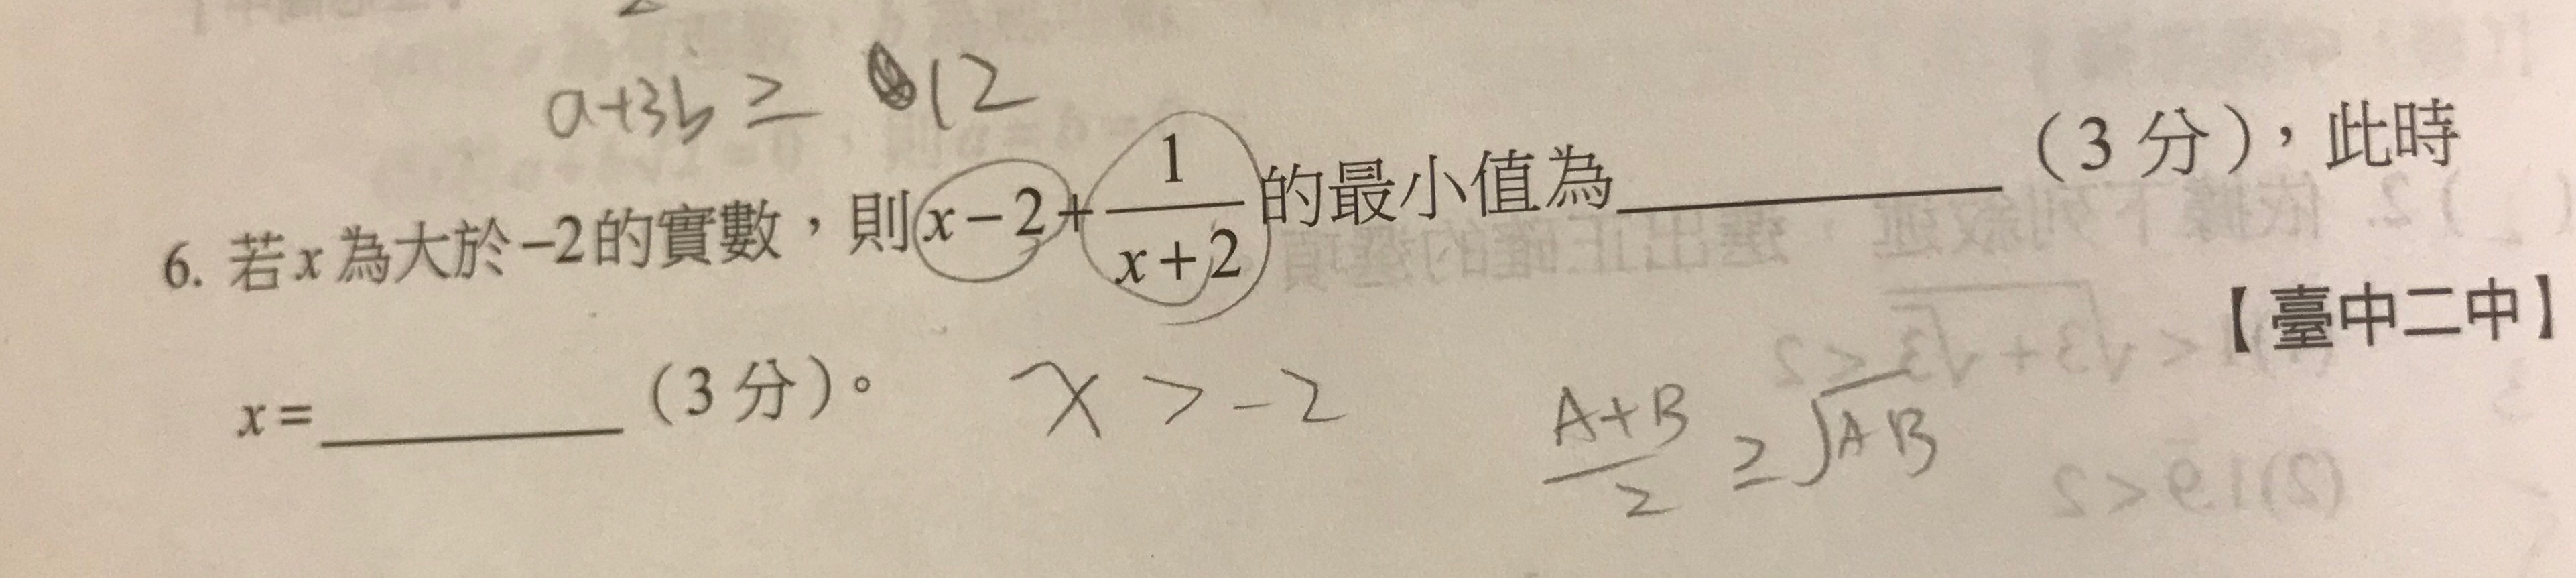 a+3b ≥ 12
6. 若x為大於-2的實數，則x-2+\frac{1}{x+2}的最小值為__________（3分），此時
【臺中二中】
x=__________（3分）。 x > -2 \frac{A+B}{2} ≥ \sqrt{AB}